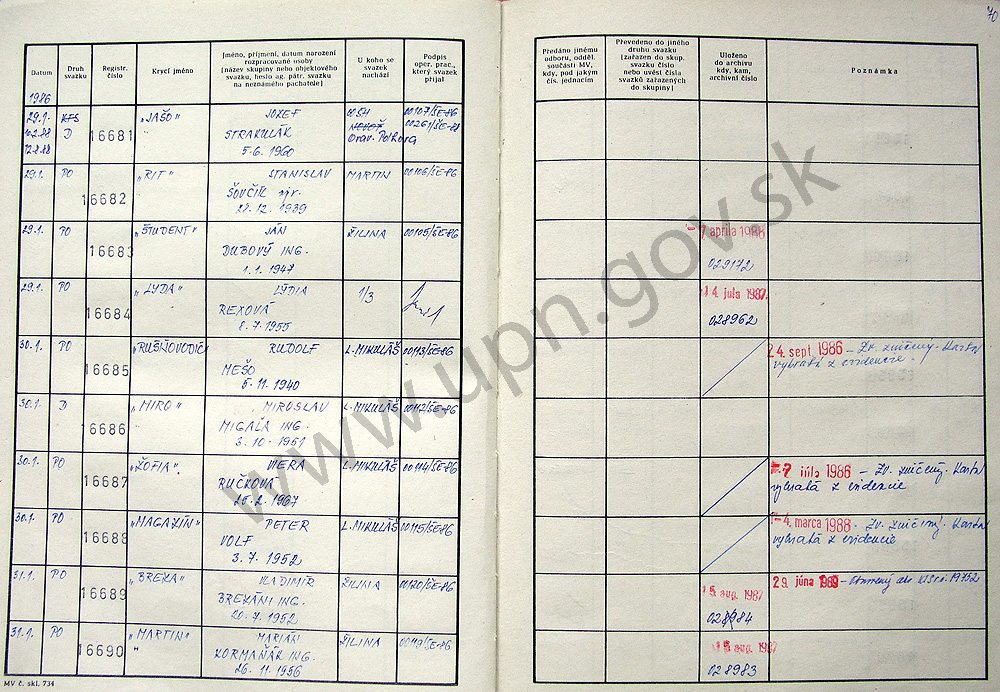 70
Datum
Druh svazku
Registr. číslo
Krycí jméno
Jméno, příjmení, datum narození rozpracované osoby (název skupiny nebo objektového svazku, heslo ag. pátr. svazku na neznámého pachatele)
U koho se svazek nachází
Podpis oper. prac., který svazek přijal
Předáno jinému odboru, odděl. součásti MV, kdy, pod jakým čís. jednacím
Převedeno do jiného druhu svazku (zařazen do skup. svazku číslo nebo uvést čísla svazků zařazených do skupiny)
Uloženo do archivu kdy, kam, archivní číslo
Poznámka
1986
29.1. KTS 16681 „JAŠO" JOZEF 0054 00107/ŠE-86
D STRAKULÁK 00261/ŠE-88
5.6. 1960 Orav. Polhora
29.1. PO 16682 „RIT" STANISLAV MARTIN 00106/ŠE-86
ŠOVČÍK
24.12. 1939
29.1. PO 16683 „ŠTUDENT" JÁN ŽILINA 00105/ŠE-86 7 apríla 1988
DUBOVÝ ING. 029172
1.1. 1947
29.1. PO 16684 „LYDA" LÝDIA 1/3 14. júla 1987
REXOVÁ 028962
8.7. 1955
30.1. PO 16685 „RUŠŇOVODIČ" RUDOLF L. MIKULÁŠ 00113/ŠE-86 24. sept 1986 – Zv. zničený. Karta
MEŠO vybratá z evidencie.
5.11. 1940
30.1. D 16686 „MIRO" MIROSLAV L. MIKULÁŠ 00112/ŠE-86
MIGAĽA ING.
3.10. 1951
30.1. PO 16687 „ŽOFIA". VIERA L. MIKULÁŠ 00114/ŠE-86 7 júla 1986 – Zv. zničený. Karta
RUČKOVÁ vybratá z evidencie
25.2. 1967
30.1. PO 16688 „MAGAZÍN" PETER L. MIKULÁŠ 00115/ŠE-86 4. marca 1988 – Zv. zničený. Karta
VOLF vybratá z evidencie
3.7. 1952
31.1. PO 16689 „BREZA" VLADIMÍR ŽILINA 00120/ŠE-86 5 aug. 1987 29. júna 1989
BREZÁNI ING. 028984
20.7. 1952
31.1. PO 16690 „MARTIN" MARIÁN ŽILINA 00119/ŠE-86 aug. 1987
KORMAŇÁK ING. 028983
26.11. 1956
MV č. skl. 734
www.upn.gov.sk